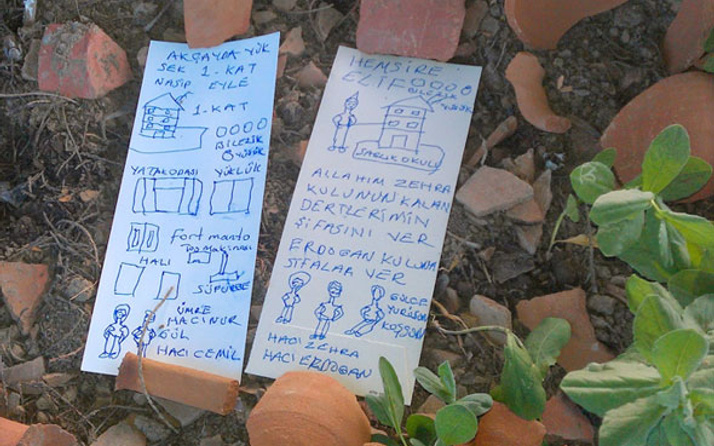 AKÇAYDA YÜK
SEK 1-KAT
NASİP EYLE
1-KAT
OOOO
BİLEZİK
YÜZÜK
YATAKODASI YÜKLÜK
fort manto
HALI
SÜPÜRGE
ÜMRE
HACINUR
GÜL
HACI CEMİL
HEMŞİRE
ELİF OOOO
BİLEZİK
YÜZÜK
SAĞLIK OKULU
ALLAHIM ZEHRA
KULUNUN KALAN
DERTLERİMİN
ŞİFASINI VER
ERDOĞAN KULUNA
ŞİFALAR VER
GÜLCE
YÜRÜSÜN
KOŞSUN
HACI ZEHRA
HACI ERDOĞAN